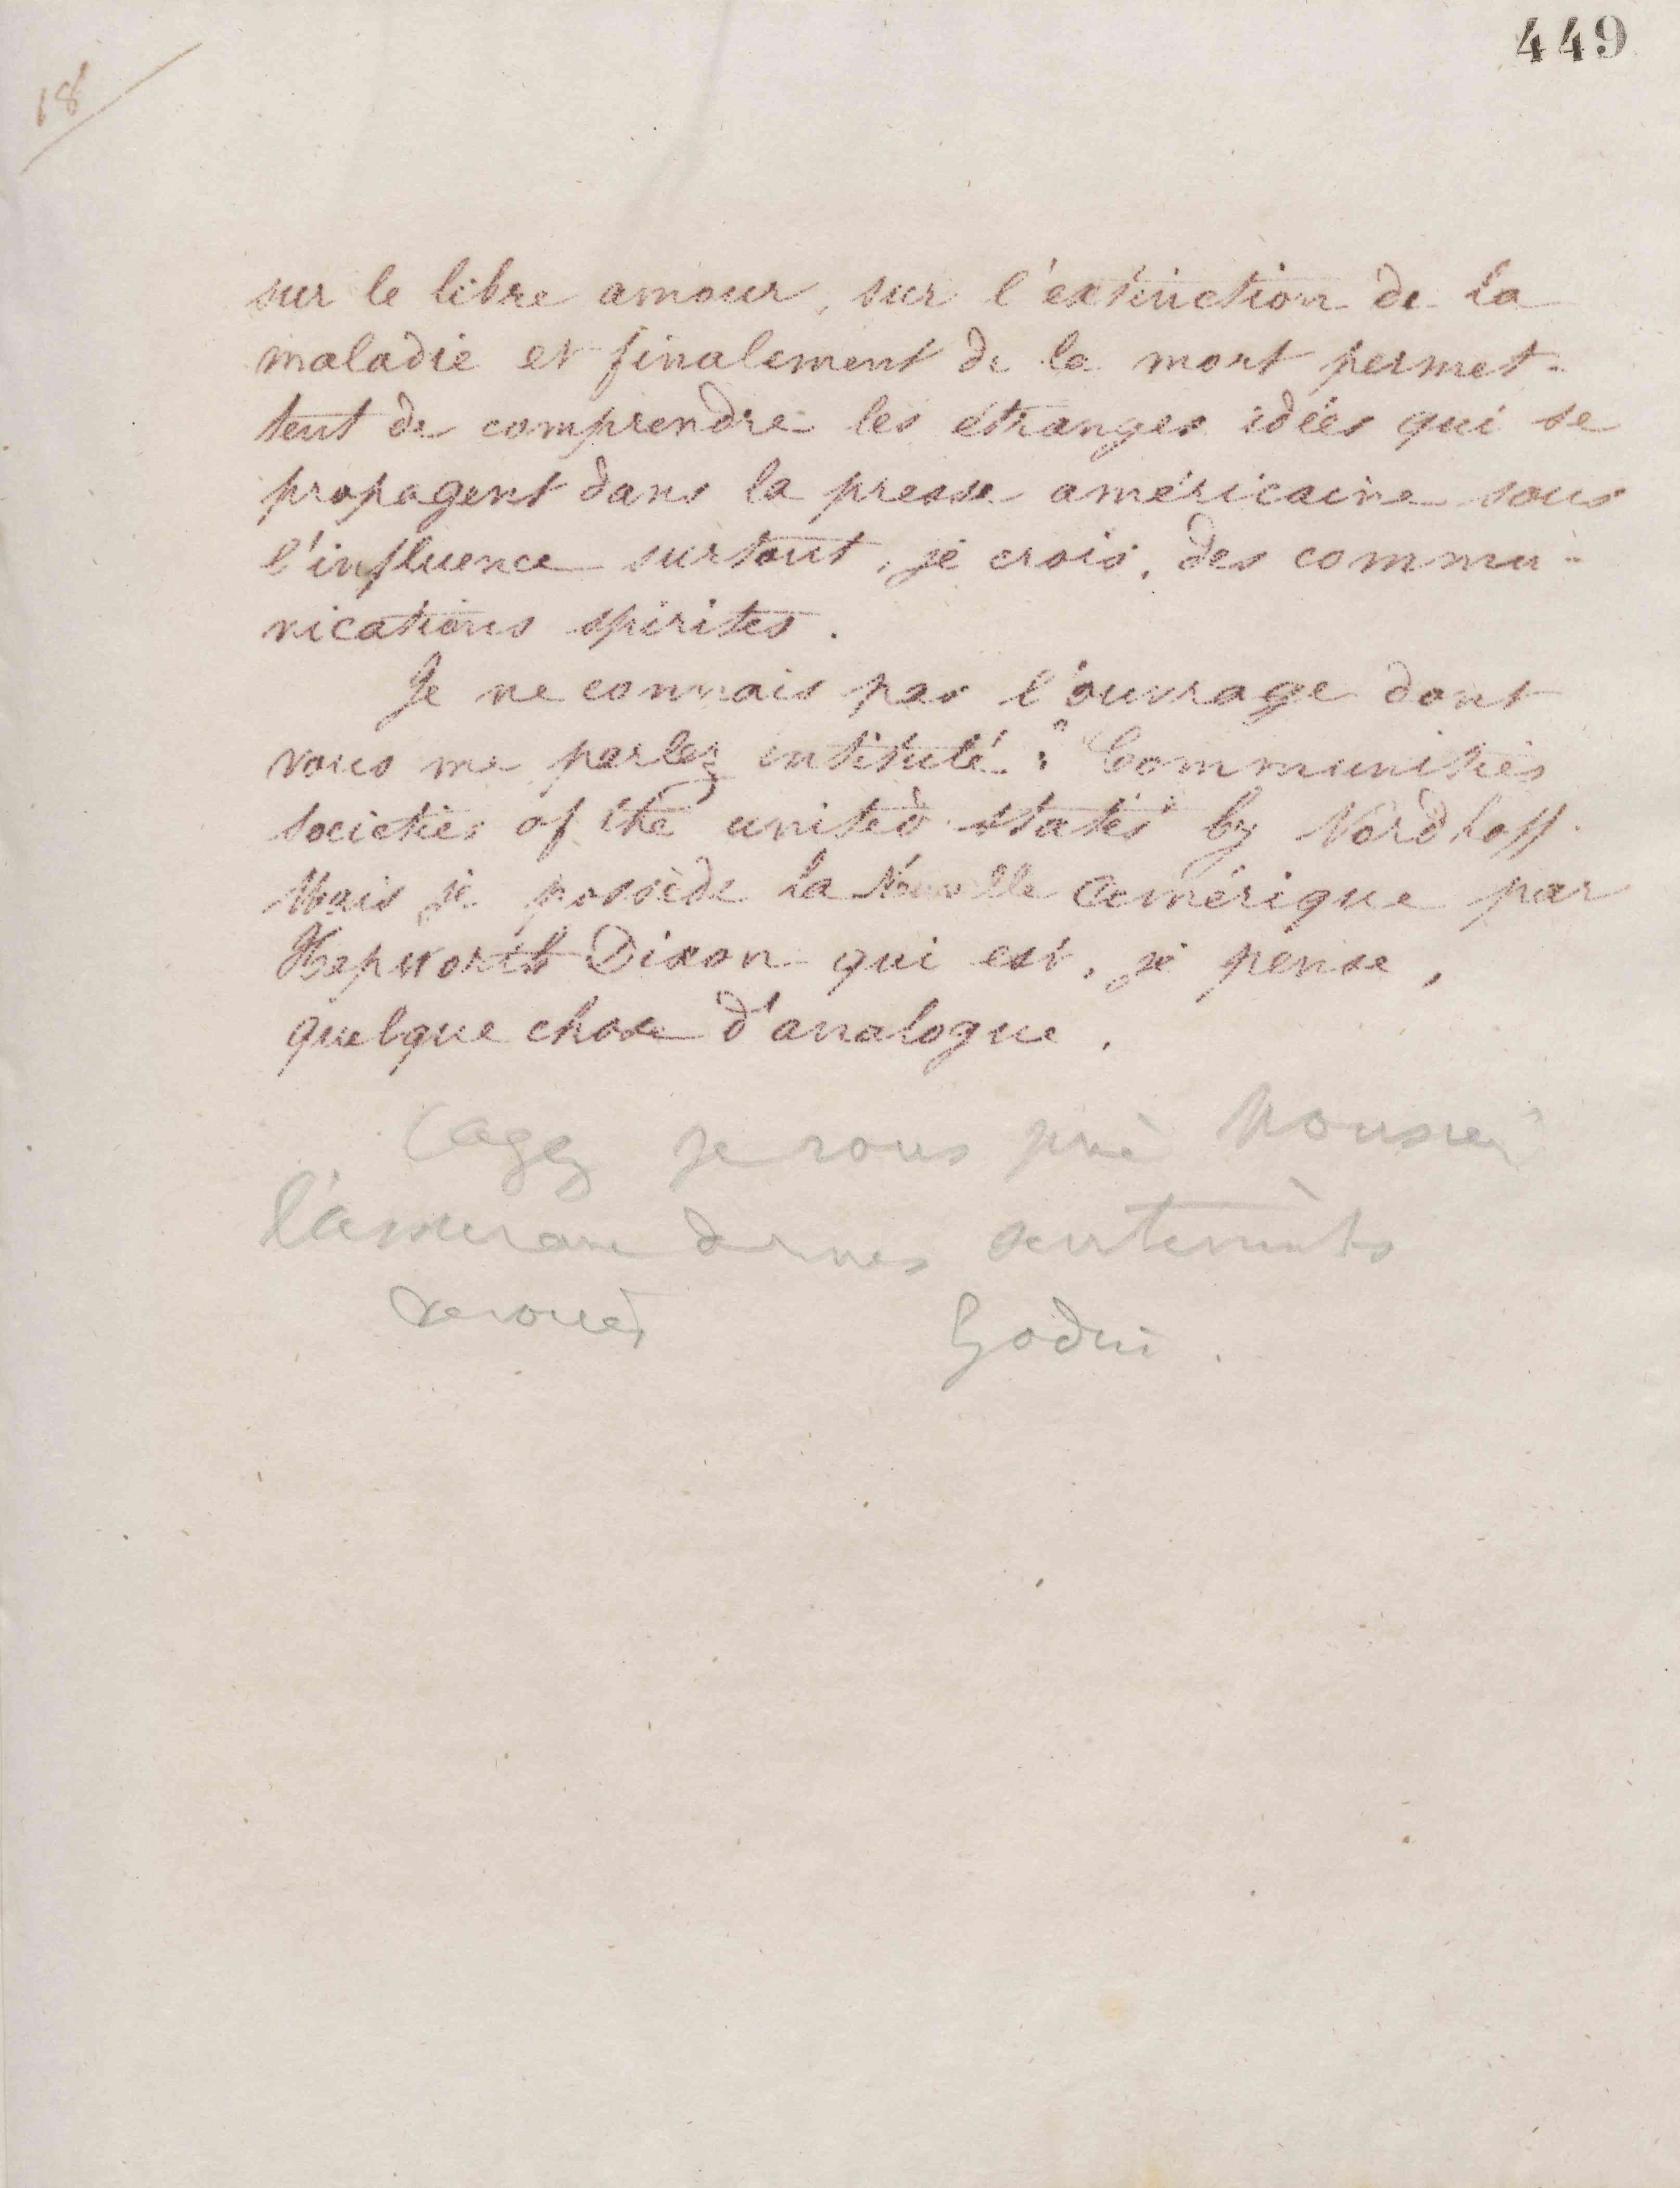 449
18
sur le libre amour, sur l'extinction de la
maladie et finalement de la mort permet-
tent de comprendre les étranges idées qui se
propagent dans la presse américaine sous
l'influence surtout, je crois, des commu-
nications spirites.
Je ne connais pas l'ouvrage dont
vous me parlez intitulé: "Communities
societies of the united states" by Nordhoff.
Mais je possède la Nouvelle Amérique par
Hepworth Dixon qui est, je pense,
quelque chose d'analogue.
je vous prie Monsieur
l'assurance de mes sentiments
dévoués Godin.